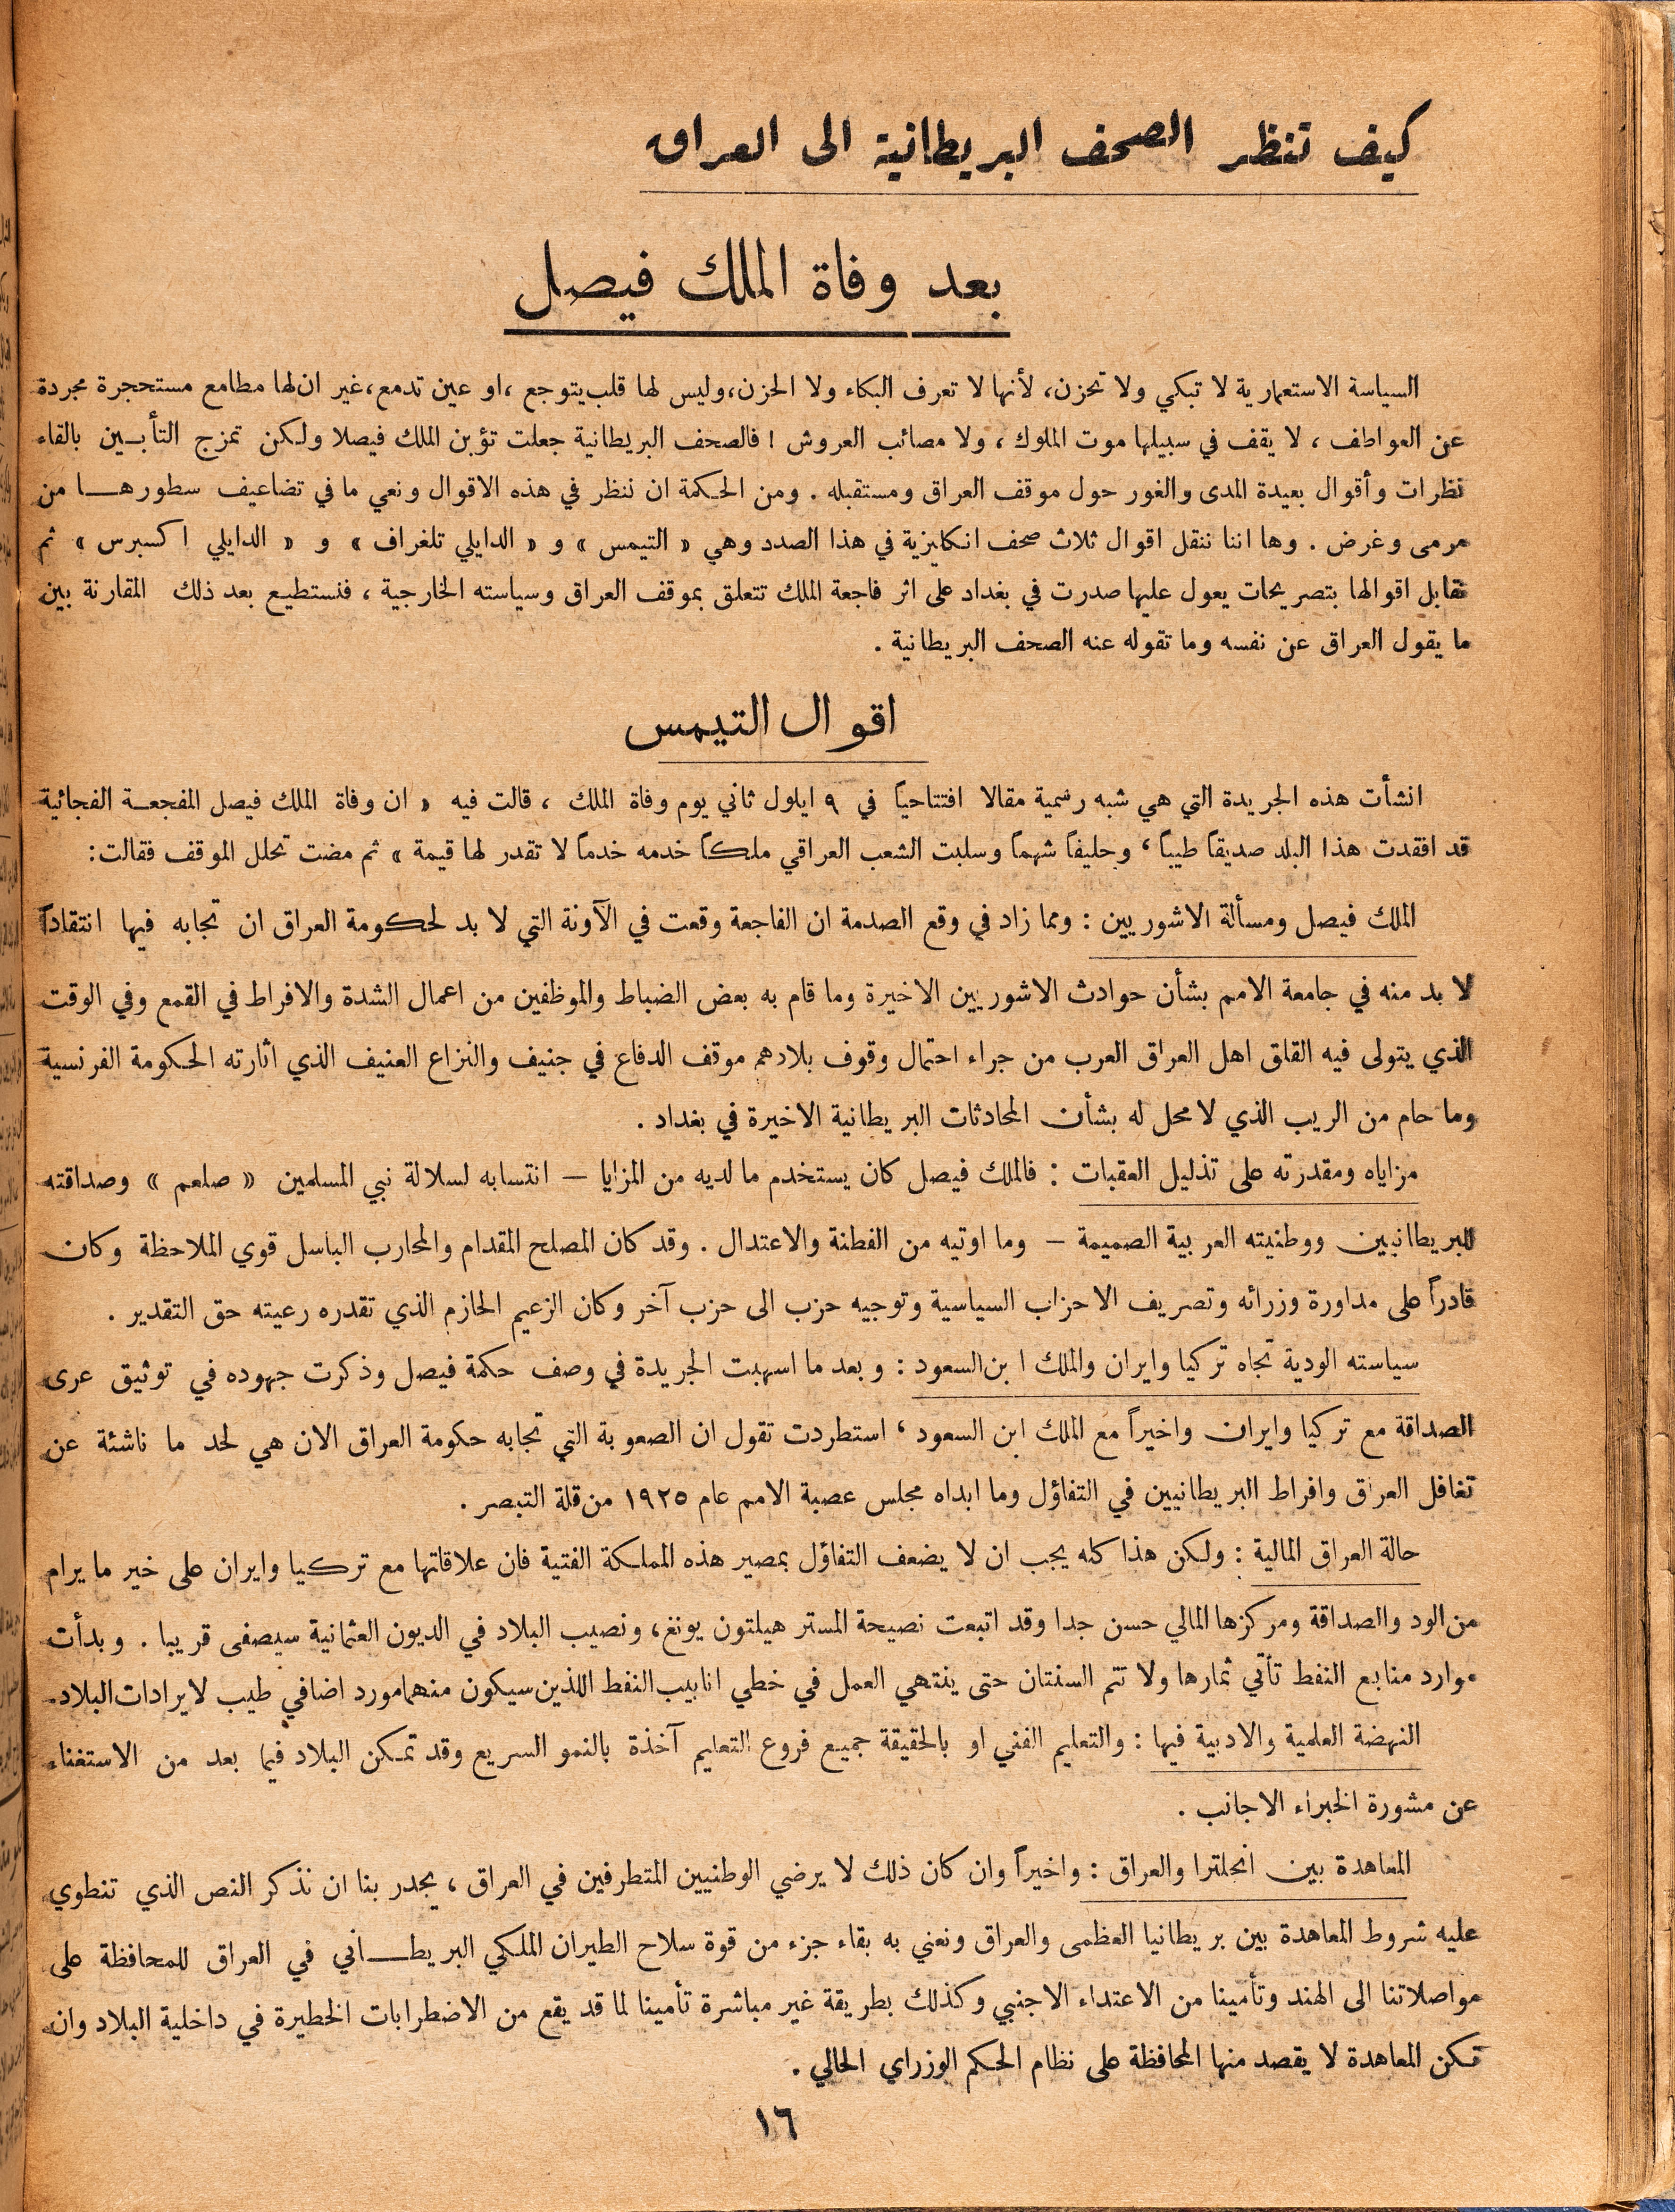 كيف تنظر الصحف البريطانية الى العراق
بعد وفاة الملك فيصل
السياسة الاستعمارية لا تبكي ولا تحزن، لأنها لا تعرف البكاء ولا الحزن، وليس لها قلب يتوجع ، او عين تدمع، غير ان لها مطامع مستحجرة مجردة
عن العواطف ، لا يقف في سبيلها موت الملوك ، ولا مصائب العروش ! فالصحف البريطانية جعلت تؤبن الملك فيصلا ولكن تمزج التأبين بالقاء
نظرات وأقوال بعيدة المدى والغور حول موقف العراق ومستقبله . ومن الحكمة ان ننظر في هذه الاقوال ونعي ما في تضاعيف سطورهـا من
مرمى وغرض . وها اننا ننقل اقوال ثلاث صحف انكليزية في هذا الصدد وهي « التيمس » و « الدايلي تلغراف » و « الدايلي اكسبرس » ثم
نقابل اقوالها بتصريحات يعول عليها صدرت في بغداد على اثر فاجعة الملك تتعلق بموقف العراق وسياسته الخارجية ، فنستطيع بعد ذلك المقارنة بين
ما يقول العراق عن نفسه وما تقوله عنه الصحف البريطانية .
اقوال التيمس
انشأت هذه الجريدة التي هي شبه رسمية مقالا افتتاحياً في ٩ ايلول ثاني يوم وفاة الملك ، قالت فيه « ان وفاة الملك فيصل المفجعة الفجائية
قد افقدت هذا البلد صديقاً طيباً ، وحليفاً شهماً وسلبت الشعب العراقي ملكاً خدمه خدماً لا تقدر لها قيمة » ثم مضت تحلل الموقف فقالت :
الملك فيصل ومسألة الاشوريين : ومما زاد في وقع الصدمة ان الفاجعة وقعت في الآونة التي لا بد لحكومة العراق ان تجابه فيها انتقاداً
لا بد منه في جامعة الامم بشأن حوادث الاشوريين الاخيرة وما قام به بعض الضباط والموظفين من اعمال الشدة والافراط في القمع وفي الوقت
الذي يتولى فيه القلق اهل العراق العرب من جراء احتمال وقوف بلادهم موقف الدفاع في جنيف والنزاع العنيف الذي اثارته الحكومة الفرنسية
وما حام من الريب الذي لا محل له بشأن المحادثات البريطانية الاخيرة في بغداد .
مزاياه ومقدرته على تذليل العقبات : فالملك فيصل كان يستخدم ما لديه من المزايا — انتسابه لسلالة نبي المسلمين « صلعم » وصداقته
للبريطانيين ووطنيته العربية الصميمة — وما اوتيه من الفطنة والاعتدال . وقد كان المصلح المقدام والمحارب الباسل قوي الملاحظة وكان
قادراً على مداورة وزرائه وتصريف الاحزاب السياسية وتوجيه حزب الى حزب آخر وكان الزعيم الحازم الذي تقدره رعيته حق التقدير .
سياسته الودية تجاه تركيا وايران والملك ابن السعود : وبعد ما اسهبت الجريدة في وصف حكمة فيصل وذكرت جهوده في توثيق عرى
الصداقة مع تركيا وايران واخيراً مع الملك ابن السعود ، استطردت تقول ان الصعوبة التي تجابه حكومة العراق الان هي لحد ما ناشئة عن
تغافل العراق وافراط البريطانيين في التفاؤل وما ابداه مجلس عصبة الامم عام ١٩٢٥ من قلة التبصر .
حالة العراق المالية : ولكن هذا كله يجب ان لا يضعف التفاؤل بمصير هذه المملكة الفتية فان علاقاتها مع تركيا وايران على خير ما يرام
من الود والصداقة ومركزها المالي حسن جدا وقد اتبعت نصيحة المستر هيلتون يونغ ، ونصيب البلاد في الديون العثمانية سيصفى قريبا . وبدأت
موارد منابع النفط تأتي ثمارها ولا تتم السنتان حتى ينتهي العمل في خطي انابيب النفط اللذين سيكون منهما مورد اضافي طيب لايرادات البلاد.
النهضة العلمية والادبية فيها : والتعليم الفني او بالحقيقة جميع فروع التعليم آخذة بالنمو السريع وقد تمكن البلاد فيما بعد من الاستغناء
عن مشورة الخبراء الاجانب .
المعاهدة بين انجلترا والعراق : واخيراً وان كان ذلك لا يرضي الوطنيين المتطرفين في العراق ، يجدر بنا ان نذكر النص الذي تنطوي
عليه شروط المعاهدة بين بريطانيا العظمى والعراق ونعني به بقاء جزء من قوة سلاح الطيران الملكي البريطـاني في العراق للمحافظة على
مواصلاتنا الى الهند وتأمينا من الاعتداء الاجنبي وكذلك بطريقة غير مباشرة تأمينا لما قد يقع من الاضطرابات الخطيرة في داخلية البلاد وان
تكن المعاهدة لا يقصد منها المحافظة على نظام الحكم الوزراي الحالي .
١٦